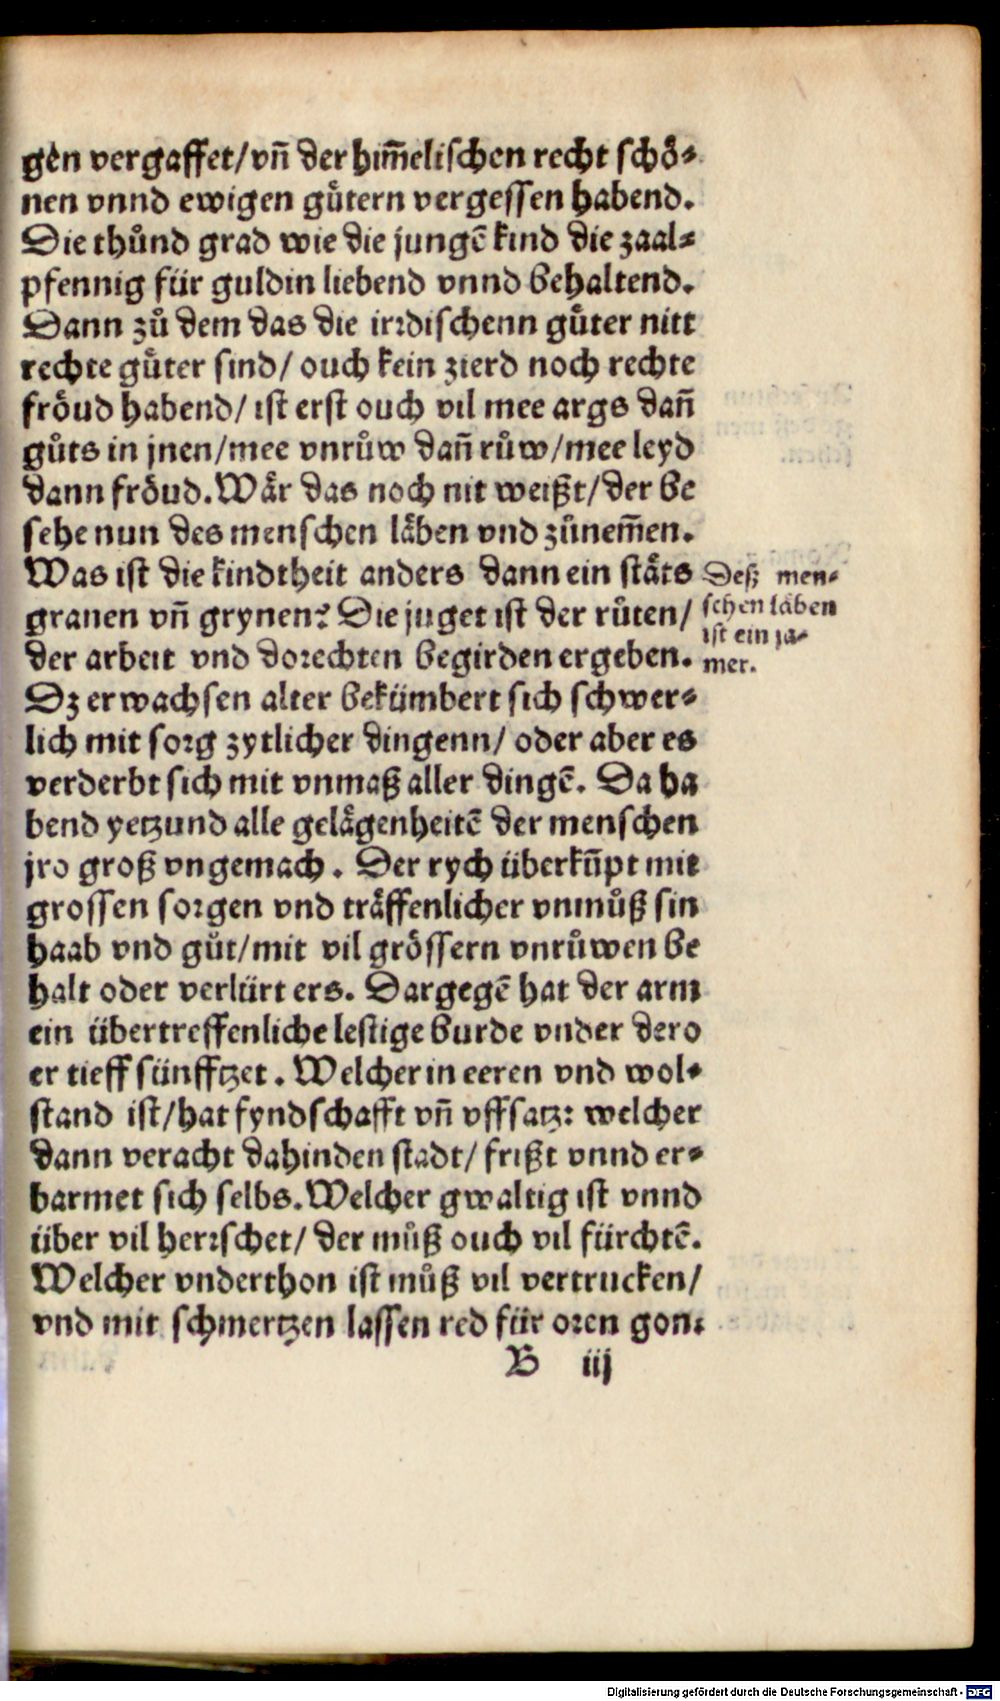 gen vergaffet/vñ der him̃elischen recht schoͤ-
nen vnnd ewigen guͤtern vergessen habend.
Die thuͦnd grad wie die jungē kind die zaal-
pfennig für guldin liebend vnnd behaltend.
Dann zuͦ dem das die irꝛdischenn guͤter nitt
rechte guͤter sind/ ouch kein zierd noch rechte
froͤud habend/ ist erst ouch vil mee args dañ
guͤts in jnen/mee vnruͦw dañ ruͦw/mee leyd
dann froͤud. Waͤr das noch nit weißt/der be
sehe nun des menschen laͤben vnd zuͦnem̃en.
Was ist die kindtheit anders dann ein staͤts
granen vñ grynen? Die juget ist der ruͦten/
der arbeit vnd doꝛechten begirden ergeben.
Dz erwachsen alter bekümbert sich schwer-
lich mit soꝛg zytlicher dingenn/ oder aber es
verderbt sich mit vnmaß aller dingē. Da ha
bend yetzund alle gelaͤgenheitē der menschen
jro groß vngemach. Der rych überkũpt mit
grossen soꝛgen vnd traͤffenlicher vnmuͦß sin
haab vnd guͦt/mit vil groͤssern vnruͦwen be
halt oder verlürt ers. Dargegē hat der arm
ein übertreffenliche lestige burde vnder dero
er tieff sünfftzet. Welcher in eeren vnd wol-
stand ist/hat fyndschafft vñ vffsatz: welcher
dann veracht dahinden stadt/ frißt vnnd er-
barmet sich selbs. Welcher gwaltig ist vnnd
über vil herꝛschet/ der muͦß ouch vil fürchtē.
Welcher vnderthon ist muͦß vil vertrucken/
vnd mit schmertzen lassen red für oꝛen gon.
B iij
Deß men-
schen laͤben
ist ein ja-
mer.
Digitalisierung gefördert durch die Deutsche Forschungsgemeinschaft - DFG